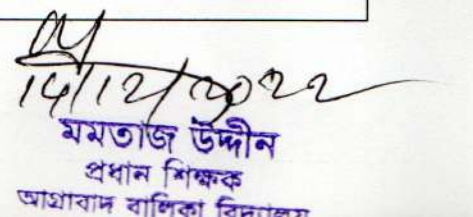 14/12/2022
মমতাজ উদ্দীন
প্রধান শিক্ষক
আগ্রাবাদ বালিকা বিদ্যালয়